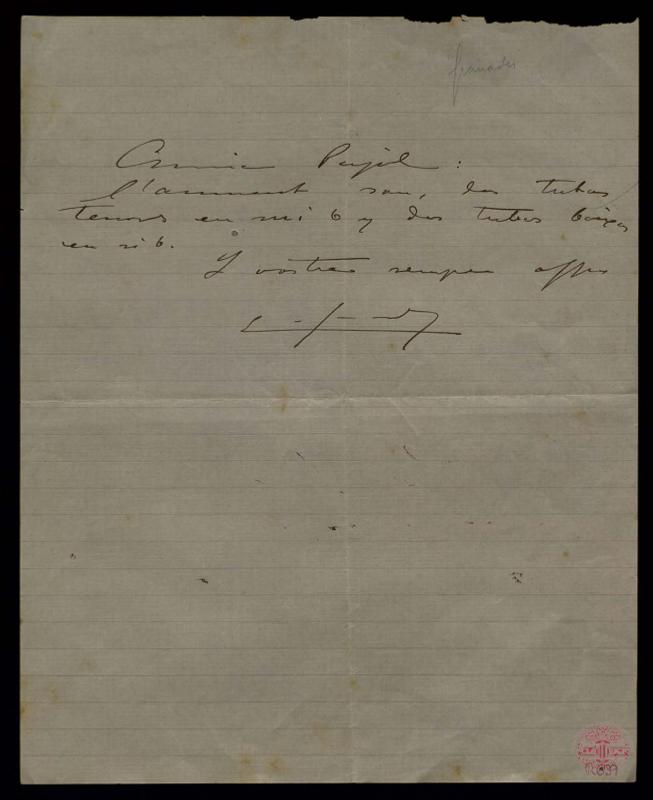 Granados
Amic Pujol:
l'aument son, dos tubas
tenors en mi b y dos tubas baixas
en si b.
vostre sempre affm